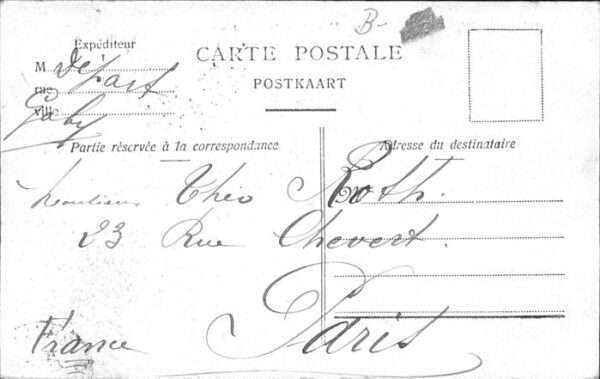 B-
Expéditeur
CARTE POSTALE
POSTKAART
M Départ
rue
ville Gaby
Partie réservée à la correspondance
Adresse du destinataire
Monsieur Théo Roth.
23 Rue Chevert.
Paris
France